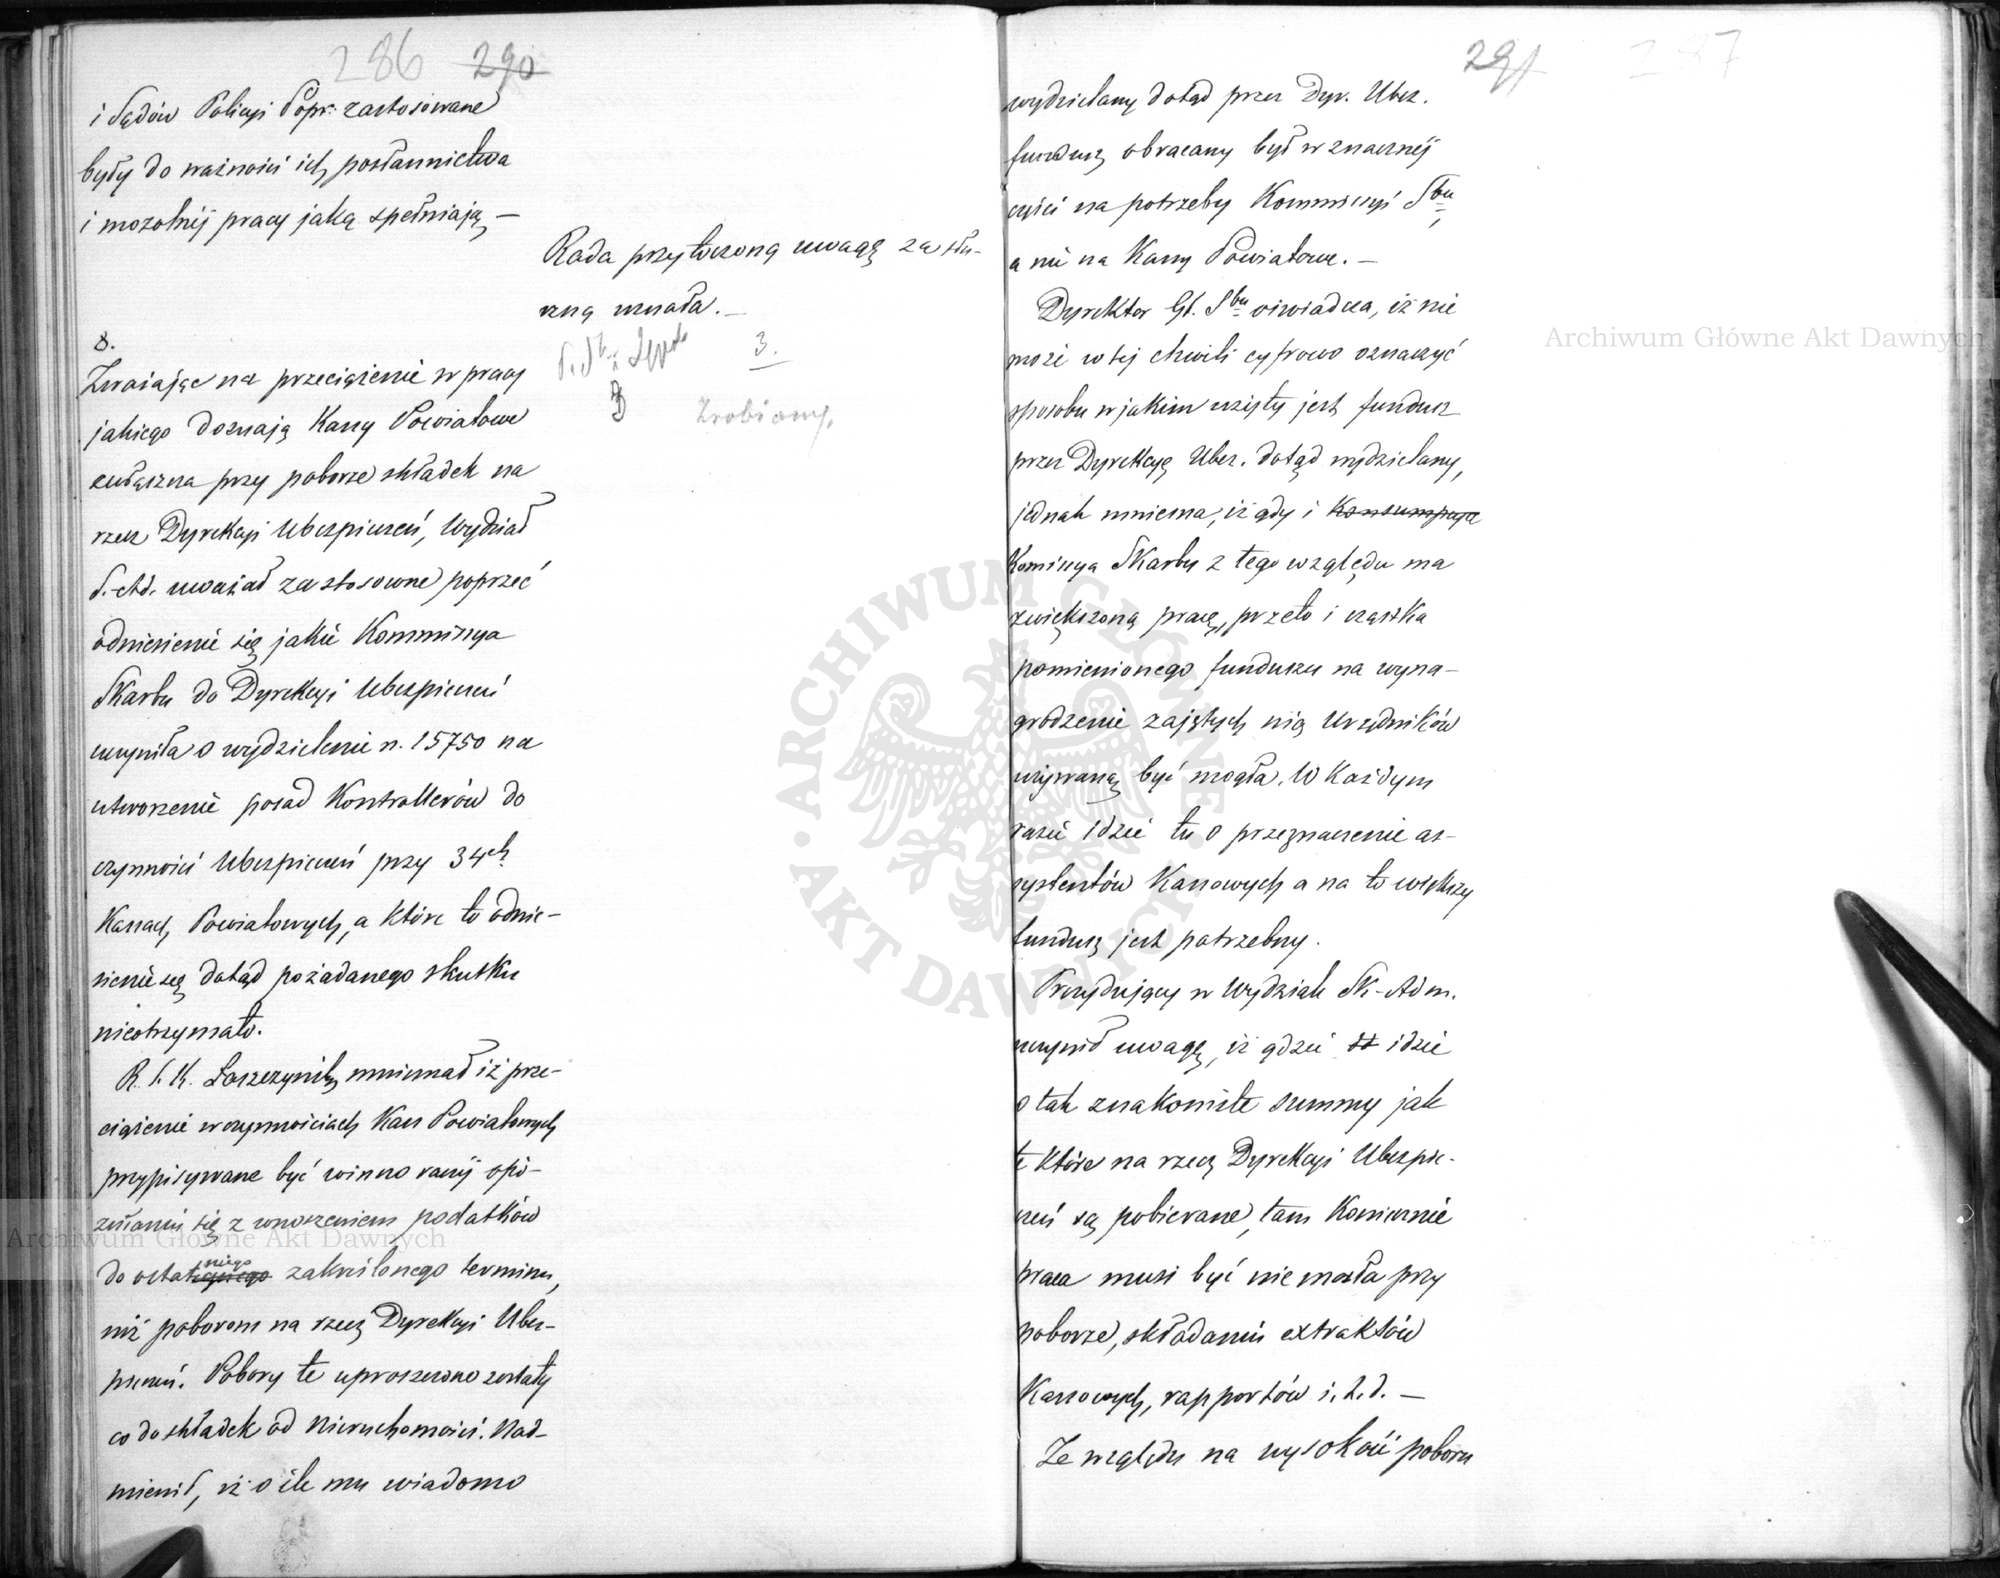 286 290
i Sądów Policyi Popr. zastosowane
były do ważności ich posłannictwa
i mozolnéj pracy jaką spełniają —
Rada przytoczoną uwagę za słu-
szną uznała. —
3.
Zrobiony.
8.
Zważając na przeciążenie w pracy
jakiego doznają Kassy Powiatowe
zwłaszcza przy poborze składek na
rzecz Dyrekcyi Ubezpieczeń, Wydział
S.-Ad. uważał za stosowne poprzeć
odniesienie się jakie Kommissya
Skarbu do Dyrekcyi Ubezpieczeń
uczyniła o wydzielenie n. 15750 na
utworzenie posad Kontrollerów do
czynności Ubezpieczeń przy 34ch
Kassach Powiatowych, a które to odnie-
sienie się dotąd pożądanego skutku
nieotrzymało.
R. S. K. Łaszczyński mniemał iż prze-
ciążenie w czynnościach Kass Powiatowych
przypisywane być winno raczéj opó-
źnianiu się z wnoszeniem podatków
do ostatniego zakreślonego terminu,
niż poborom na rzecz Dyrekcyi Ubez-
pieczeń. Pobory te uproszczone zostały
co do składek od Nieruchomości. Nad-
mienił, iż o ile mu wiadomo
291 287
wydzielany dotąd przez Dyr. Ubez.
fundusz obracany był w znacznéj
części na potrzeby Kommissyi Sbu,
a nie na Kassy Powiatowe. —
Dyrektor Gł. Sbu oświadcza, iż nie
może w téj chwili cyfrowo oznaczyć
sposobu w jakim użyty jest fundusz
przez Dyrekcyę Ubez. dotąd wydzielany,
jednak mniema, iż gdy i Konsumpcya
Komissya Skarbu z tego względu ma
zwiększoną pracę, przeto i cząstka
pomienionego funduszu na wyna-
grodzenie zajętych nią Urzędników
używaną być mogła. W każdym
razie idzie tu o przeznaczenie as-
systentów Kassowych a na to większy
fundusz jest potrzebny.
Prezydujący w Wydziale Sk.-Adm.
uczynił uwagę, iż gdzie idzie
o tak znakomite summy jak
te które na rzecz Dyrekcyi Ubezpie-
czeń są pobierane, tam Koniecznie
praca musi być niemała przy
poborze, składaniu extraktów
Kassowych, rapportów i. t. d. —
Ze względu na wysokość poboru
Archiwum Główne Akt Dawnych
Archiwum Główne Akt Dawnych
ARCHIWUM GŁÓWNE AKT DAWNYCH